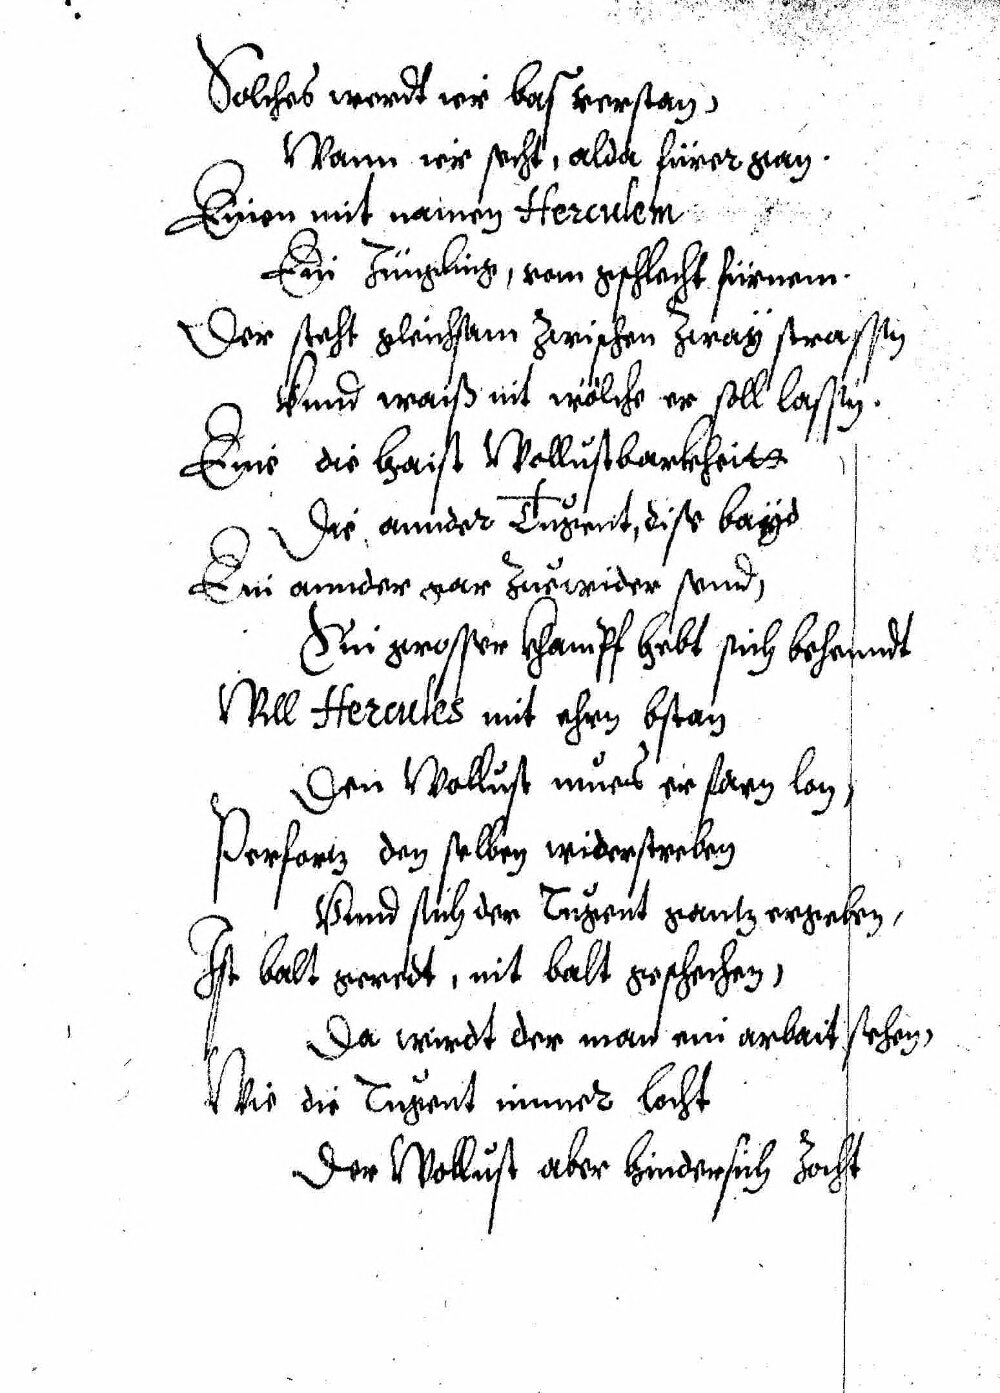 Solches werdt ier bas verstan,
Wann ier secht, alda fürer gan.
Einen mit namen Herculem
Ein Jüngling, vom gschlecht fürnem.
Der steht gleichsam zwischen zway strassen
Vnnd waiß nit wölche er soll lassen.
Eine die haist Wollustbarkheitt
Die annder Tugent, dise bayd
Ein annder gar zuewider send,
Ein grosser khampff hebt sich behenndt
Will Hercules mit ehrn bstan
Den Wollust mues er farn lon,
Perfortz den selben widerstreben
Vnnd sich der Tugent gantz ergeben,
Ist balt geredt, nit balt geschehen,
Da wirdt der man ein arbait sehen,
Wie die Tugent immer locht
Der Wollust aber hindersich zocht